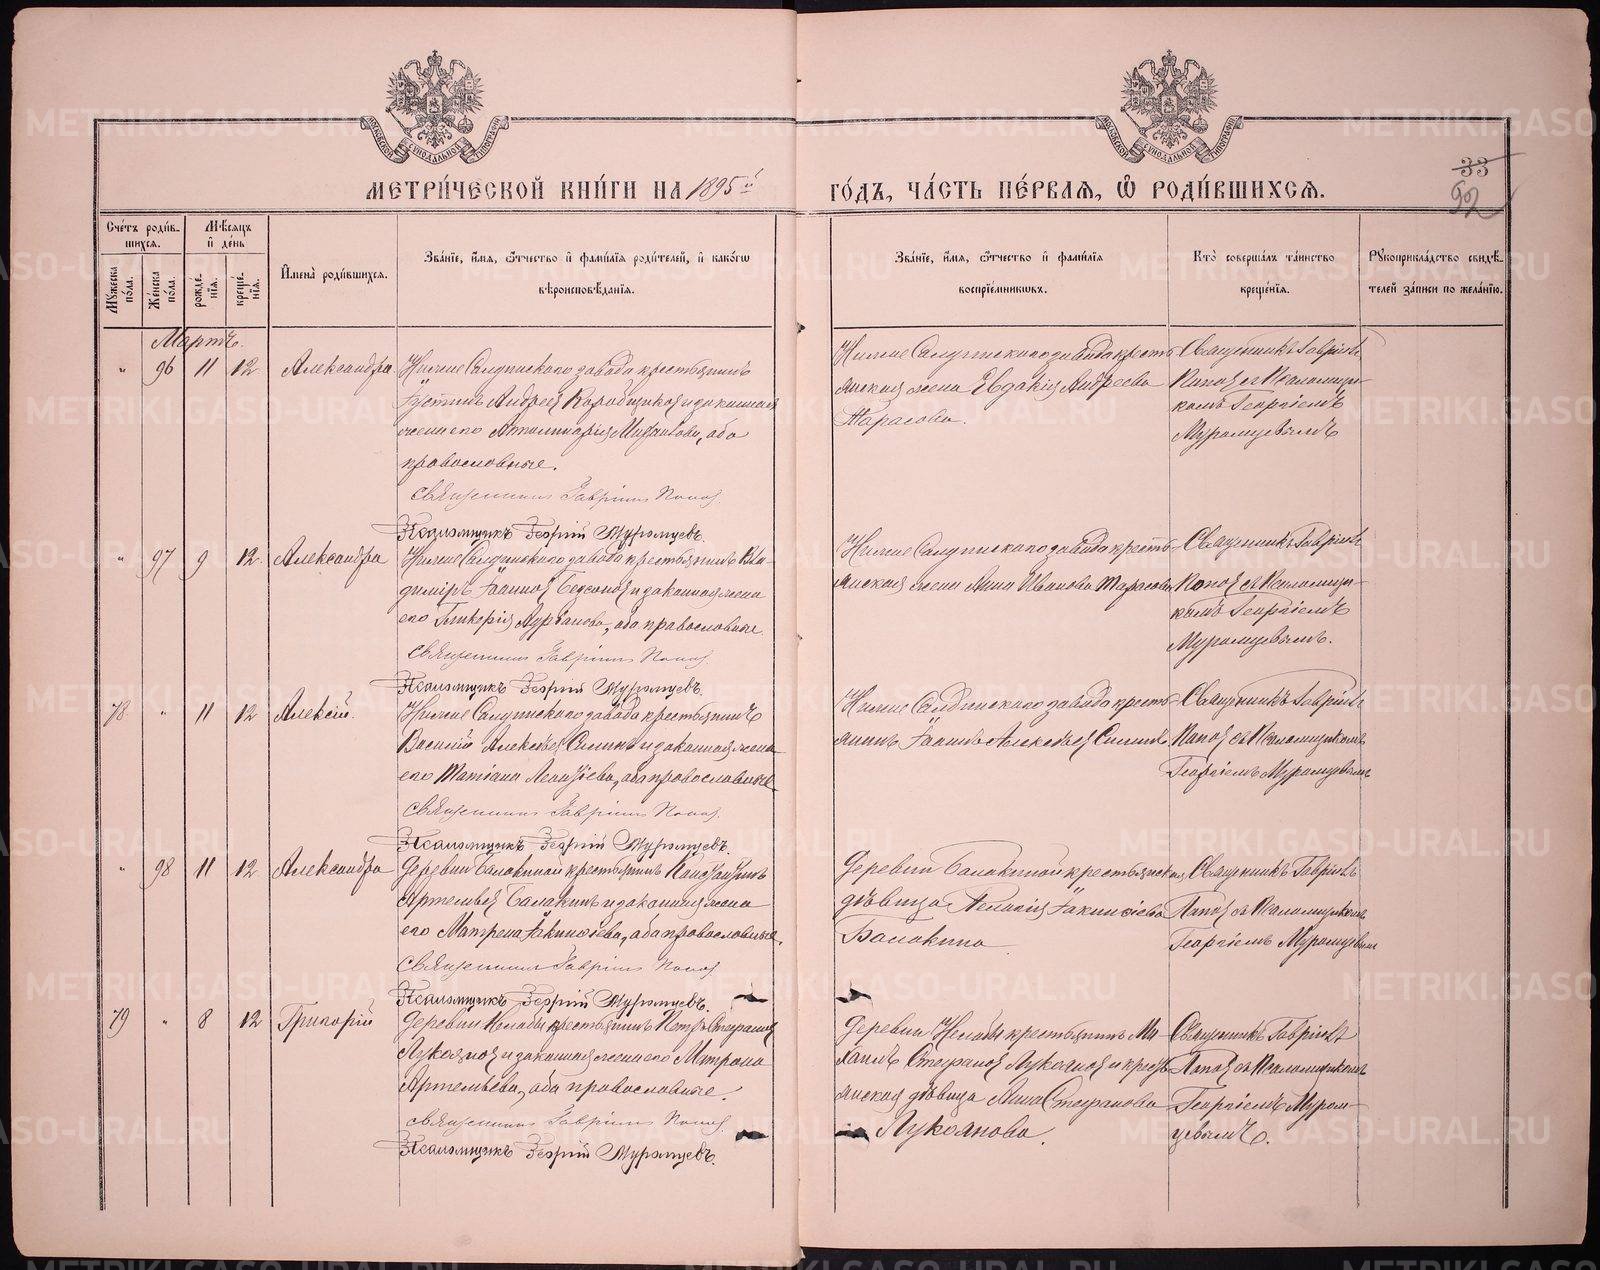 МЕТРИ́ЧЕСКОЙ КНИ́ГИ НА 1895й
ГО́ДЪ, ЧА́СТЬ ПЕ́РВАѦ, Ѿ РОДИ́ВШИХСѦ.
33
92
Сче́тъ роди́в-
шихсѧ.
Мѣ́сѧцъ
и де́нь
Мꙋ́жеска
по́ла.
Же́нска
по́ла.
рожде́-
нїѧ.
креще́-
нїѧ.
И҆мена̀ роди́вшихсѧ.
Зва́нїе, и҆́мѧ, ѻ҆́тчество и҆ фами́лїѧ роди́телей, и҆ како́гѡ
вѣроисповѣ́данїѧ.
Зва́нїе, и҆́мѧ, ѻ҆́тчество и҆ фами́лїѧ
воспрїе́мникѡвъ.
Кто̀ соверша́лъ та́инство
креще́нїѧ.
Рꙋкоприкла́дство свидѣ́-
телей за́писи по жела́нїю.
Мартъ.
" 96 11 12 Александра
Нижне Салдинскаго завода крестьянинъ
Іустинъ Андреев и законная
жена его Михайлова, оба
православные.
Священникъ Гавріилъ Попов
Псаломщикъ Георгій Муромцевъ.
Нижне Салдинскаго завода кресть-
янская жена Евдокія Андреева
Тарасова.
Священникъ Гавріилъ
Попов съ Псаломщи-
комъ Георгіемъ
Муромцевымъ
" 97 9 12 Александра
Нижне Салдинскаго завода крестьянинъ Вла-
диміръ Іоаннов и законная жена
его Гликерія, оба православные.
Священникъ Гавріилъ Попов
Псаломщикъ Георгій Муромцевъ.
Нижне Салдинскаго завода кресть-
янская жена Анна Иванова Тарасова
Священникъ Гавріилъ
Попов съ Псаломщи-
комъ Георгіемъ
Муромцевымъ.
78 " 11 12 Алексій.
Нижне Салдинскаго завода крестьянинъ
Василій Алексѣев и законная жена
его Татіана, оба православные
Священникъ Гавріилъ Попов
Псаломщикъ Георгій Муромцевъ.
Нижне Салдинскаго завода кресть-
янинъ Іоаннъ Алексѣев
Священникъ Гавріилъ
Попов съ Псаломщикомъ
Георгіемъ Муромцевымъ
" 98 11 12 Александра
Деревни Балакиной крестьянинъ
Артемьев Балакинъ и законная жена
его Матрена Іакинѳіева, оба православные.
Священникъ Гавріилъ Попов
Псаломщикъ Георгій Муромцевъ.
Деревни Балакиной крестьянская
дѣвица Пелагія Іакинѳіева
Балакина
Священникъ Гавріилъ
Попов съ Псаломщикомъ
Георгіемъ Муромцевым
79 " 8 12 Григорій
Деревни Нелобы крестьянинъ Петръ Стефанов
Лукоянов и законная жена его Матрона
Артемьева, оба православные.
Священникъ Гавріилъ Попов
Псаломщикъ Георгій Муромцевъ.
Деревни Нелобы крестьянинъ Ми-
хаилъ Стефанов Лукоянов и кресть-
янская дѣвица Анна Стефанова
Лукоянова.
Священникъ Гавріилъ
Попов съ Псаломщикомъ
Георгіемъ Муром-
цевымъ.
METRIKI.GASO-URAL.RU